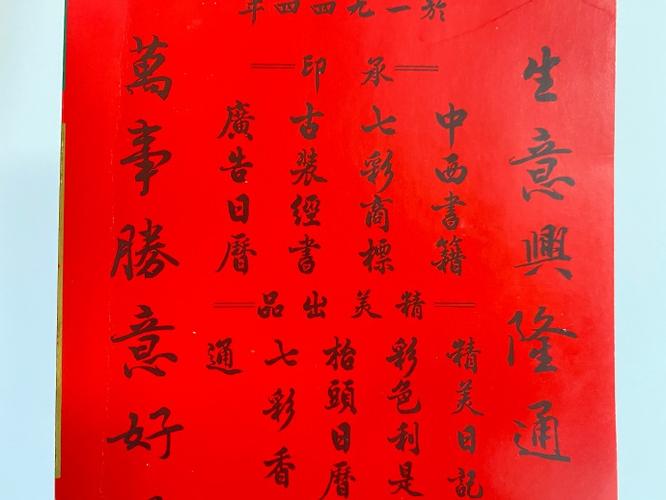 於一九四四年
生意興隆通
承印
中西書籍
七彩商標
古裝經書
廣告日曆
精美出品
精美日記
彩色利是
枱頭日曆
七彩香
通
萬事勝意好